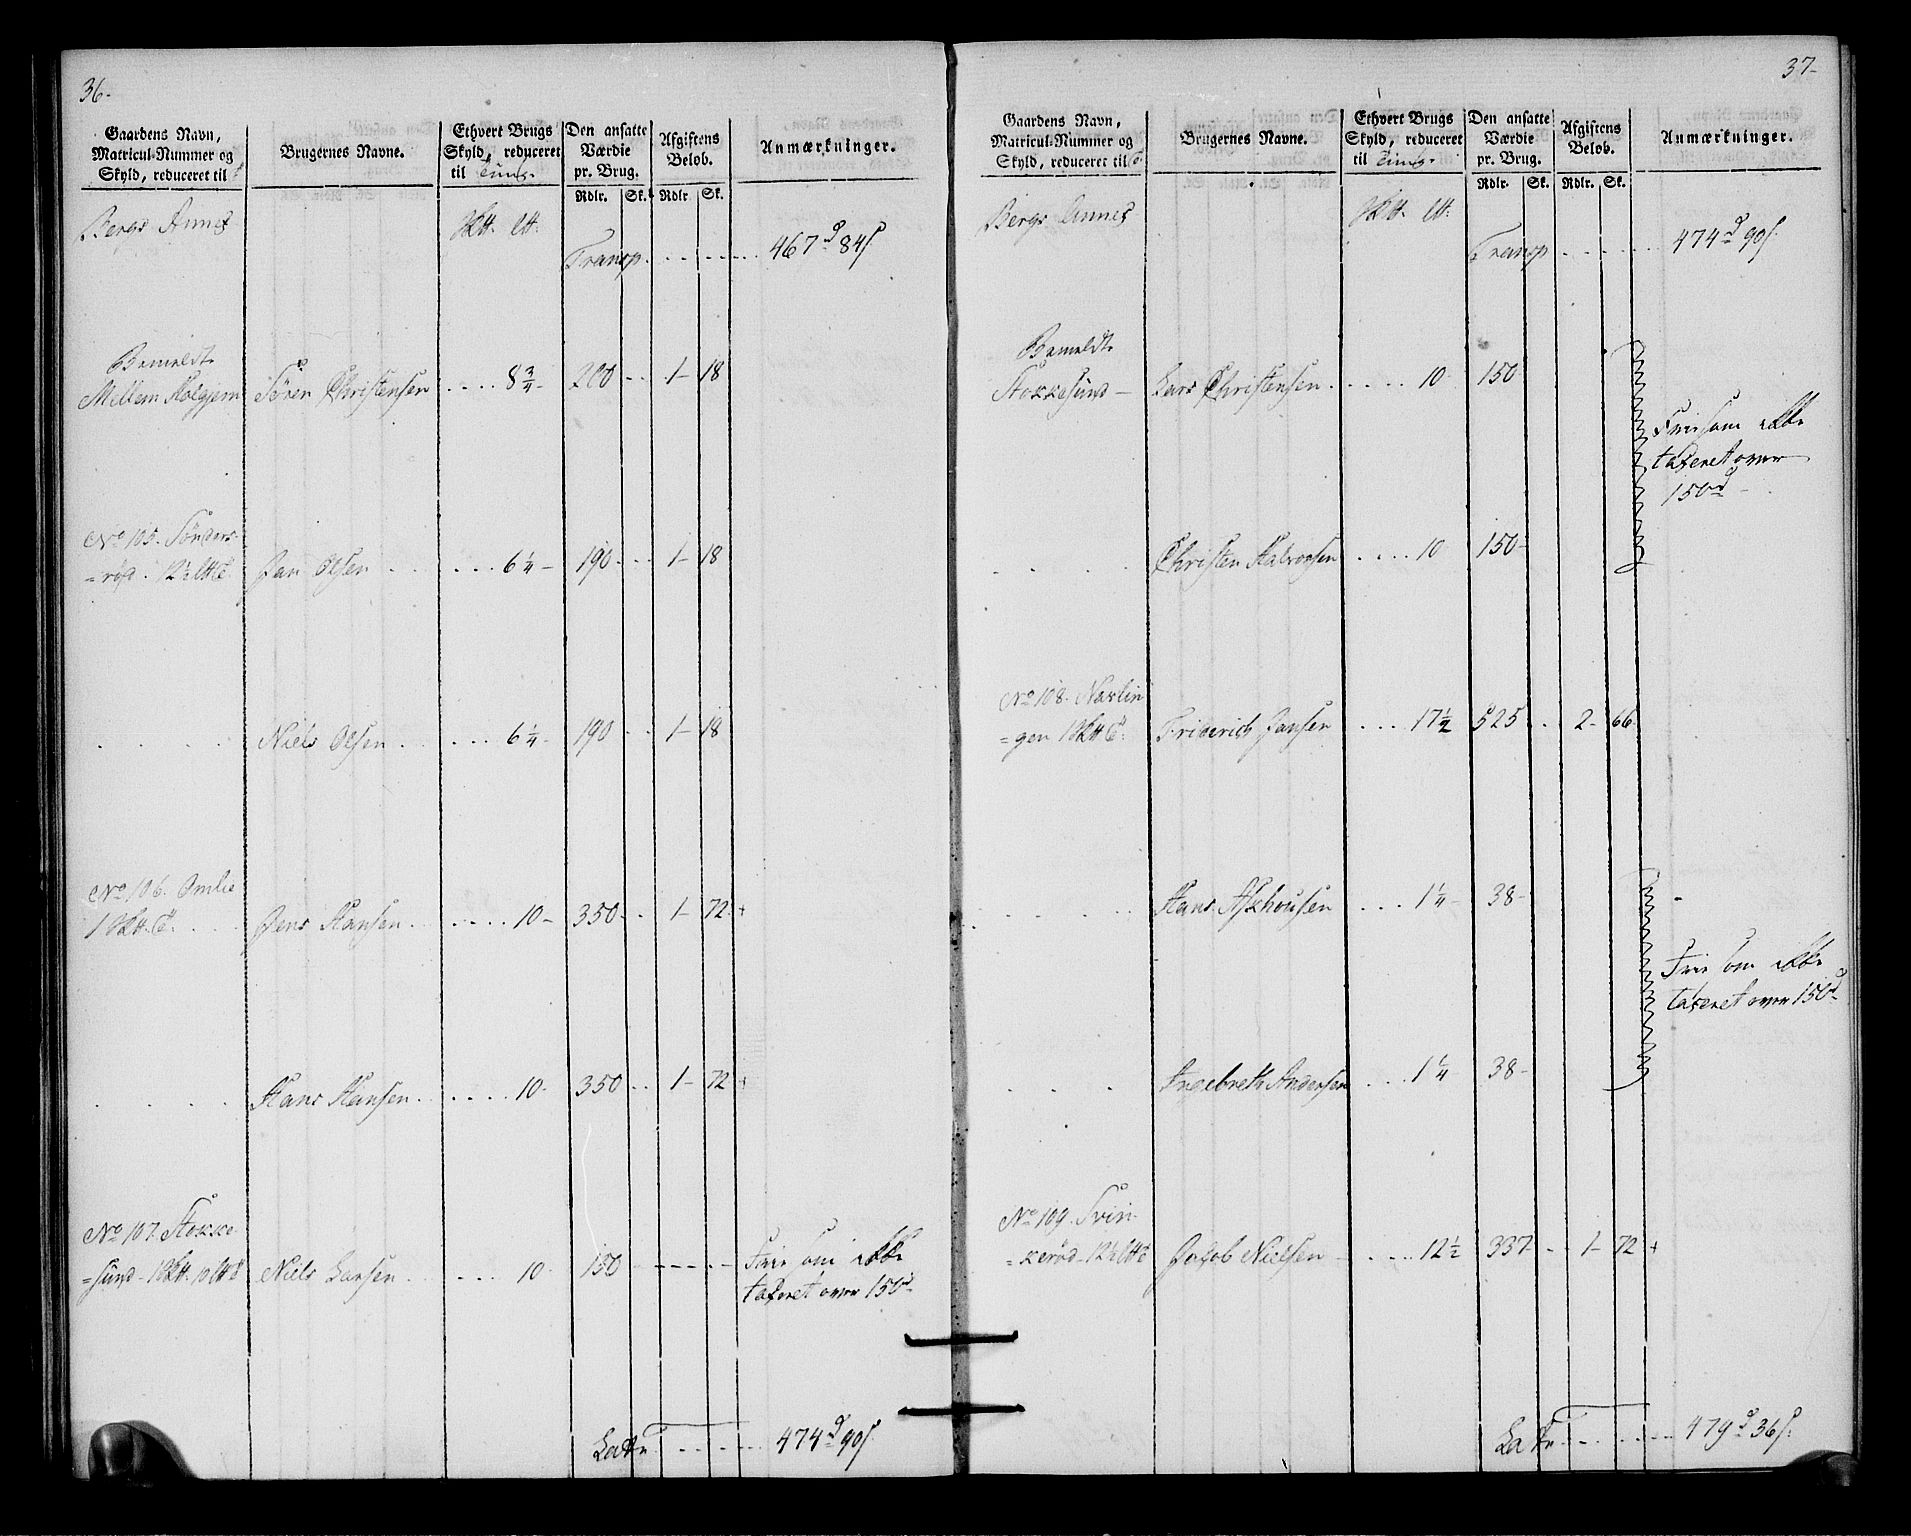 36.
Gaardens Navn, Matricul-Nummer og Skyld, reduceret til
Brugernes Navne.
Ethvert Brugs Skyld, reduceret til Tung.
Den ansatte Værdie pr. Brug.
Afgiftens Beløb.
Anmærkninger.
Rdlr. Sk. Rdlr. Sk.
Bergs Annex
Transp. 467 84
Bemeldte
Mellem Holgjem Søren Christensen 8 3/4 - 200 1 - 18
No 105. Sønders-
=rød. 12 1/2 Jan Olsen 6 1/4 - 190 1 - 18
Niels Olsen 6 1/4 - 190 1 - 18
No 106. Omlie
1 Jens Hansen 10 - 350 1 - 72 +
Hans Hansen 10 - 350 1 - 72 +
No 107. Stokke-
=sund - 1 10 Niels Larsen 10 150 Frie som ikke
taxeret over 150
Latus 474 90
37-
Gaardens Navn, Matricul-Nummer og Skyld, reduceret til
Brugernes Navne.
Ethvert Brugs Skyld, reduceret til Tung.
Den ansatte Værdie pr. Brug.
Afgiftens Beløb.
Anmærkninger.
Rdlr. Sk. Rdlr. Sk.
Bergs Annex
Transp 474 90
Bemeldte
Stokkesund - Lars Christensen 10 150
Frie som ikke
taxeret over
150
Christen Halvorsen 10 150
No 108. Navlin
=gen 1 Friderich Jansen 17 1/2 525 2 - 66
Hans Askhousen 1 1/4 38 -
Frie som ikke
taxeret over 150
Ingebreth Andersen 1 1/4 38 -
No 109. Svin-
=kerød - 12 1/2 Jakob Nielsen 12 1/2 337 1 - 72 +
Latus 479 36